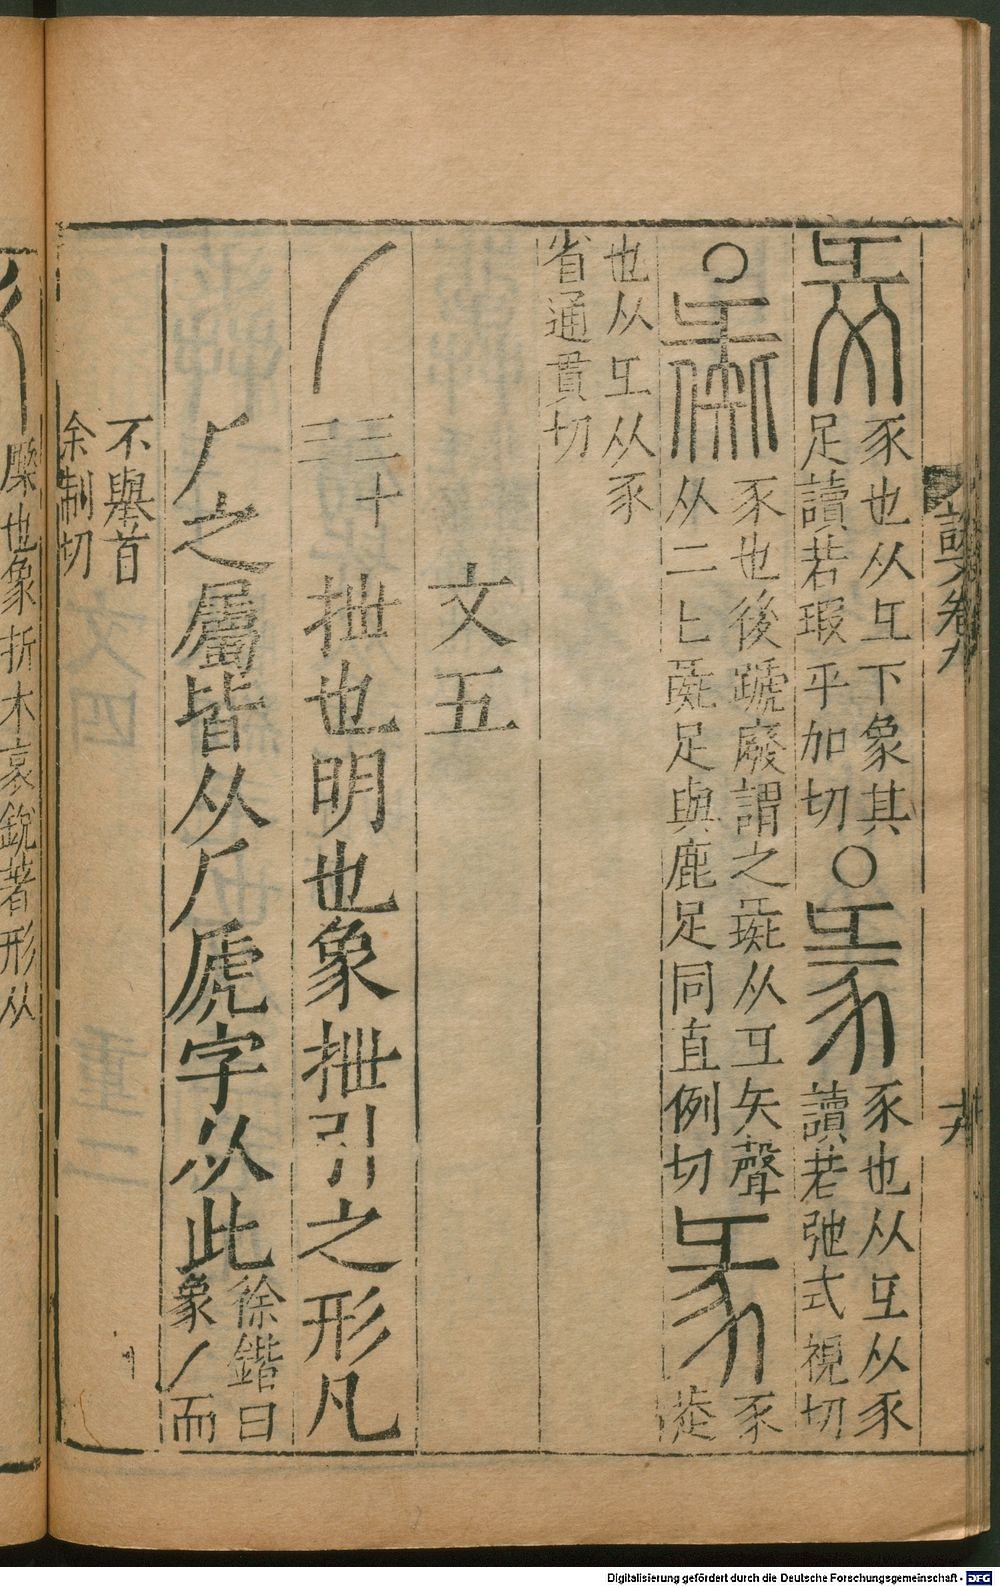 𢑓豕也从彑下象其足讀若瑕乎加切○彖豕也从彑从豕讀若弛式視切
○彘豕也後蹏廢謂之彘从彑矢聲从二匕彘足與鹿足同直例切彖豕走
也从彑从豕省通貫切
文五
𠂆三十三抴也明也象抴引之形凡
𠂆之屬皆从𠂆虒字从此徐鍇曰象丿而
不舉首余制切
橜也象折木衺銳著形从
說文卷九
Digitalisierung gefördert durch die Deutsche Forschungsgemeinschaft - DFG